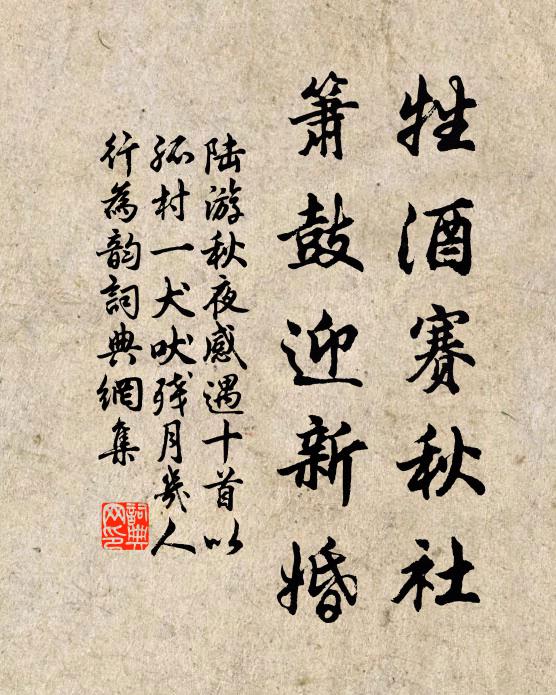 牲酒賽秋社
簫鼓迎新婚
陆游秋夜感遇十首以
孤村一犬吠残月几人
行為韵詞典網集
詞典
网印